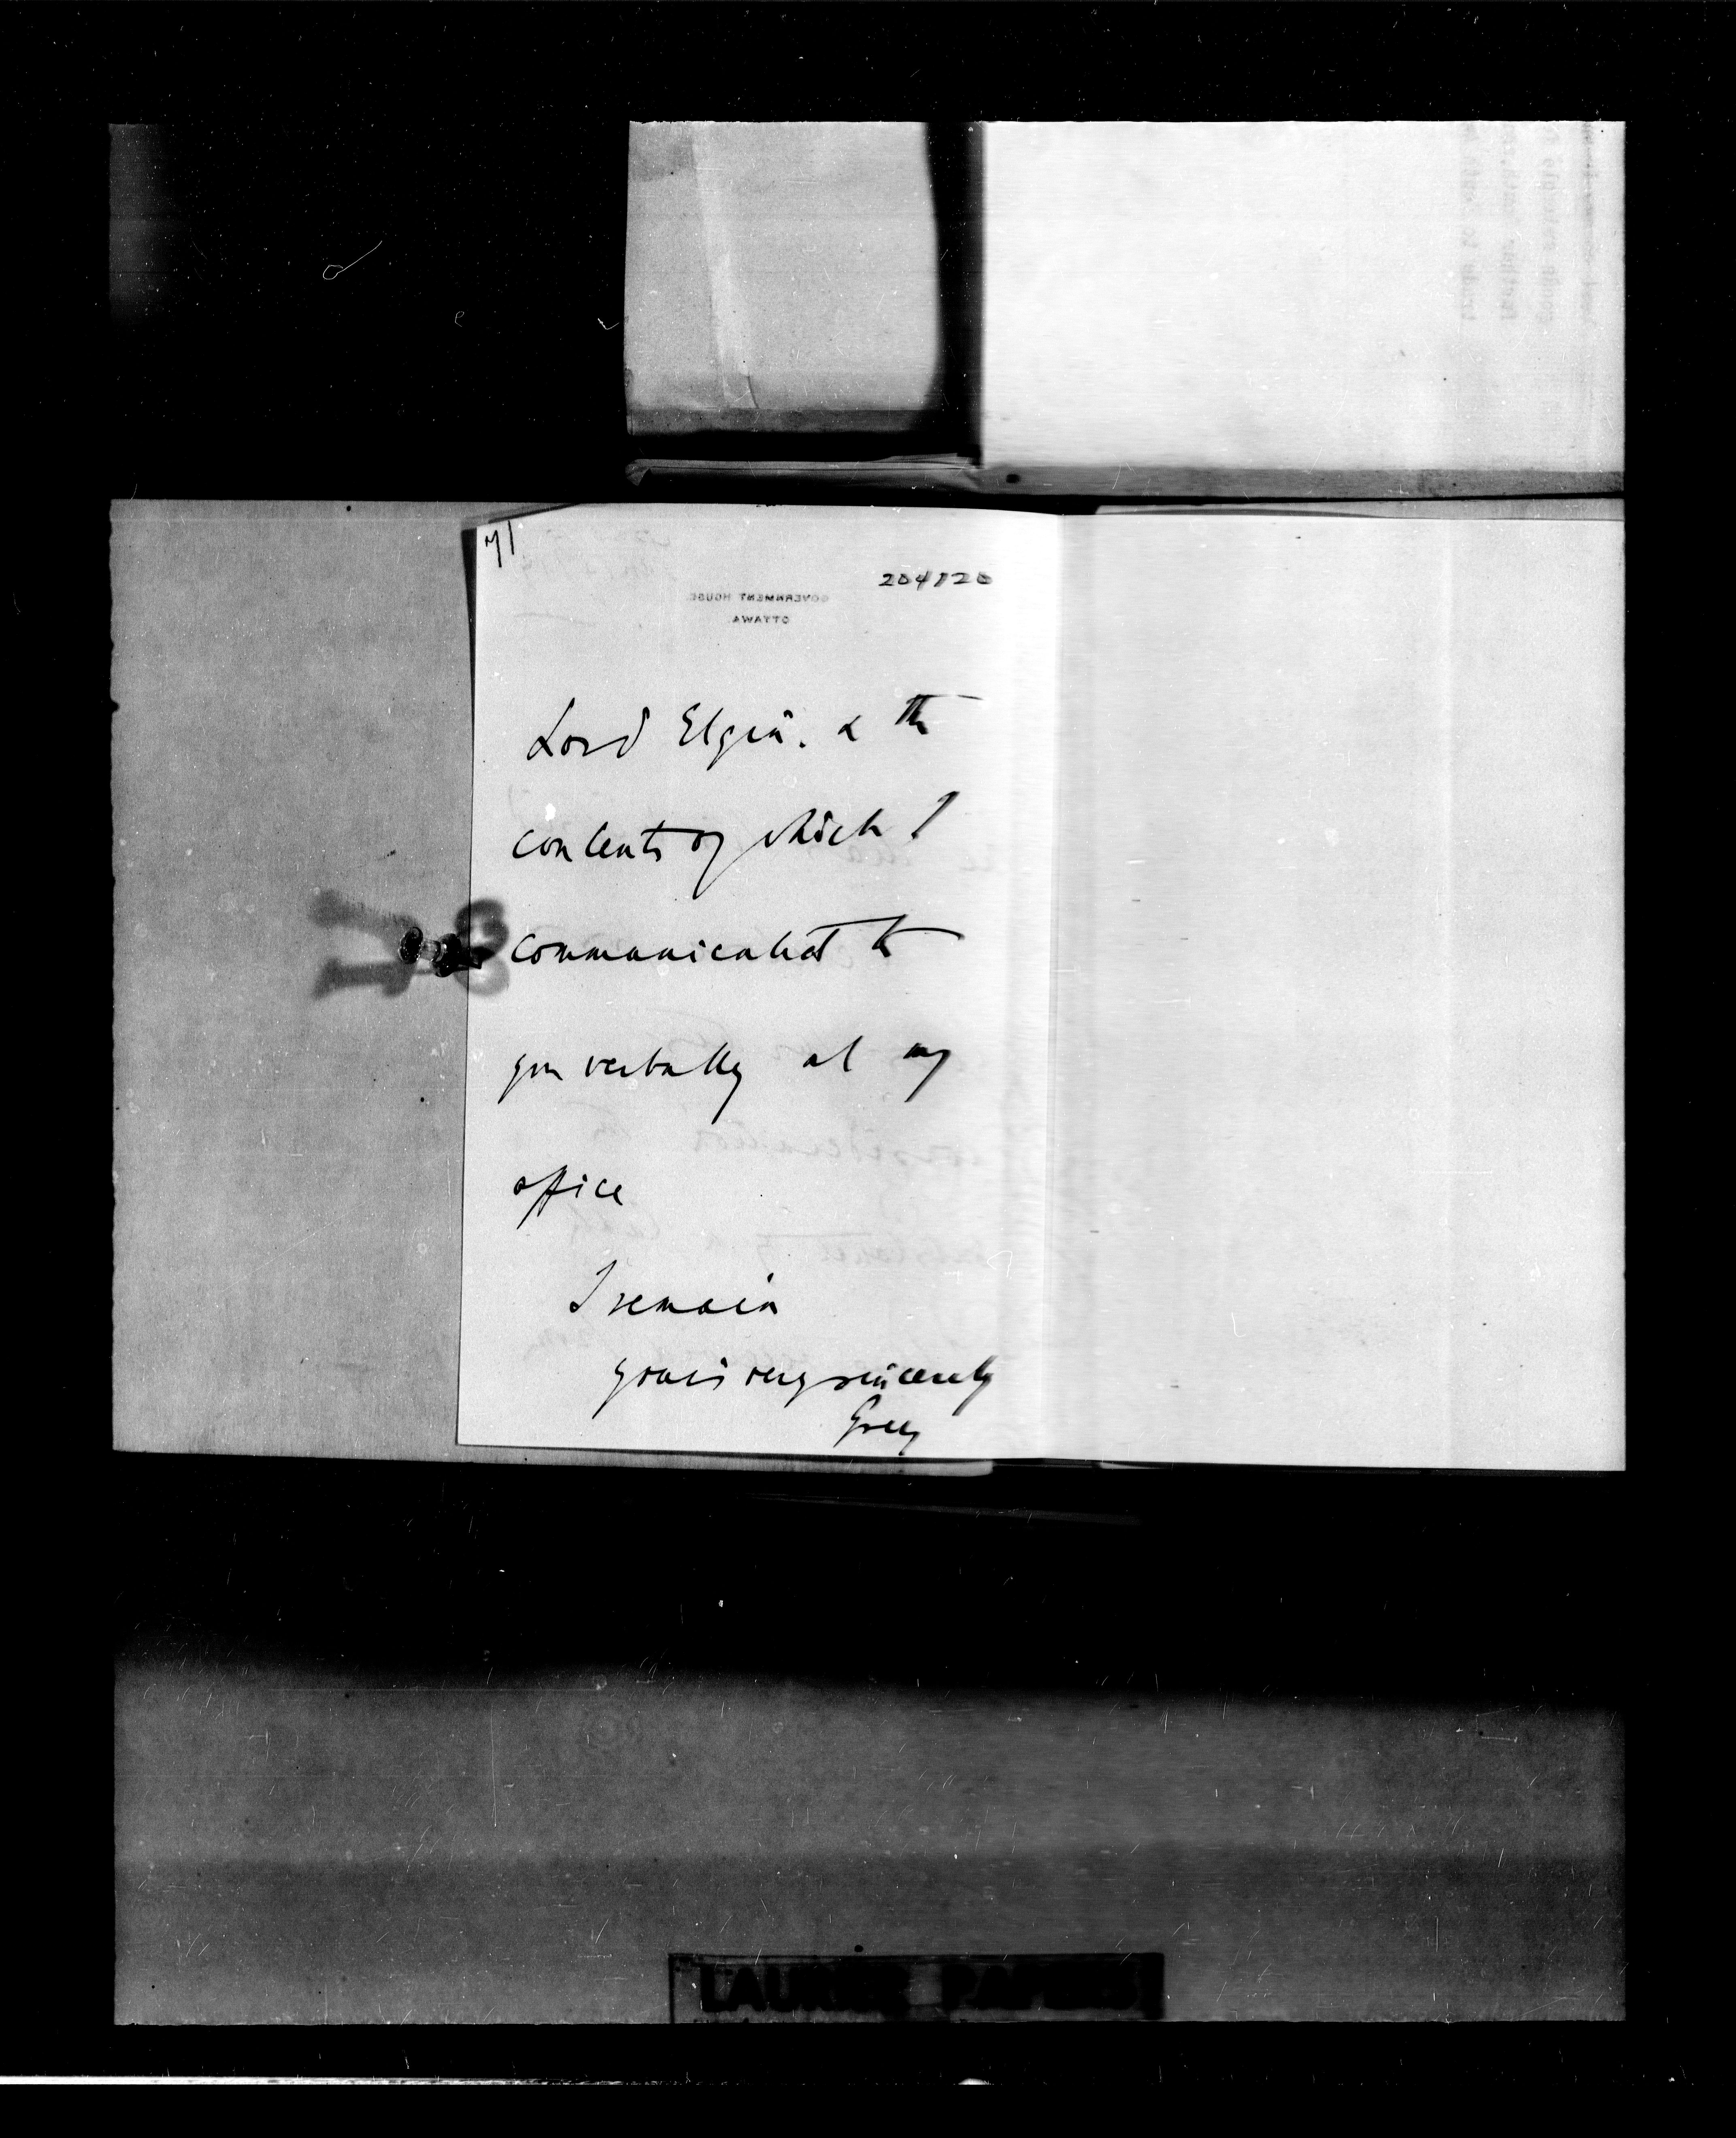 71
204120
GOVERNMENT HOUSE
OTTAWA
Lord Elgin. & the
contents of which I
communicated to
you verbally at my
office
I remain
yours very sincerely
Grey
LAURIER PAPERS